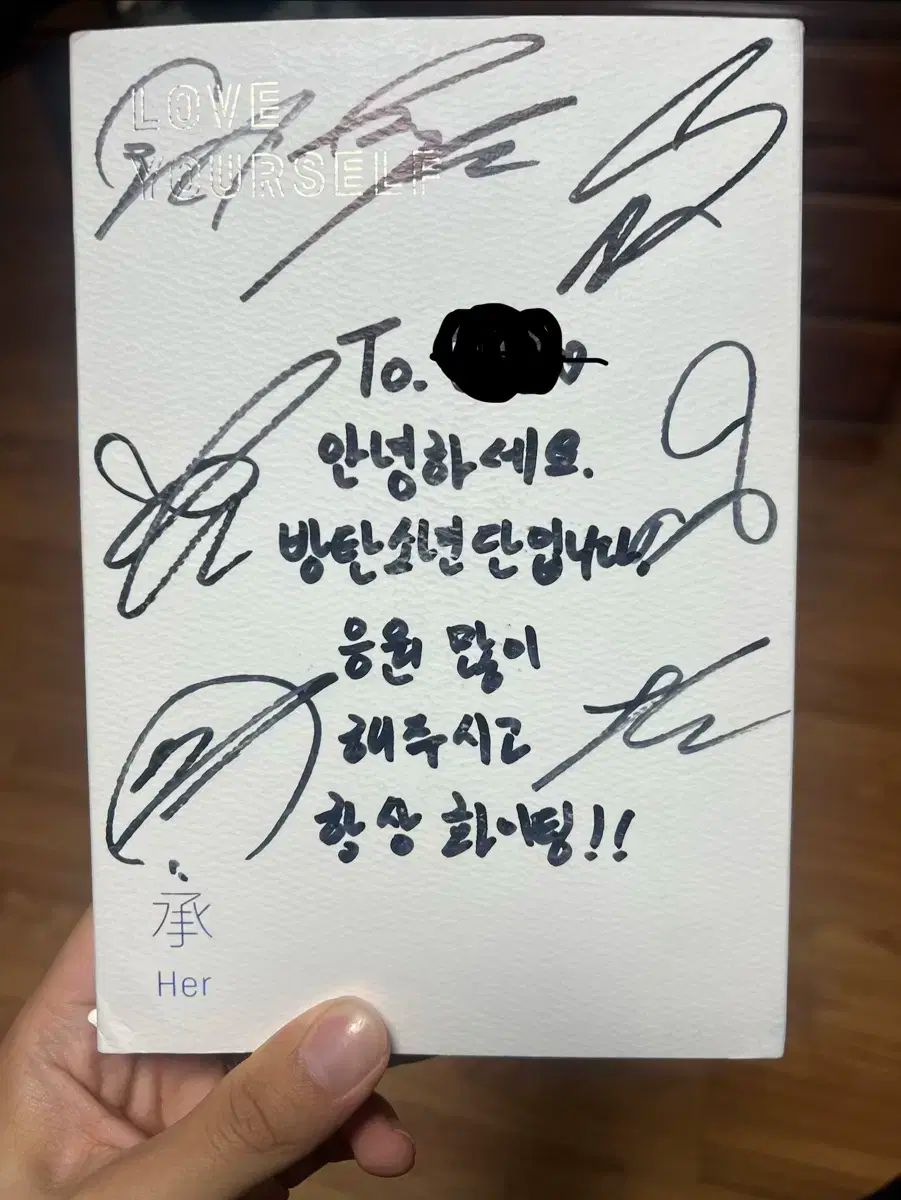 LOVE
YOURSELF
To.
안녕하세요.
방탄소년단입니다!
응원 많이
해주시고
항상 화이팅!!
承
Her